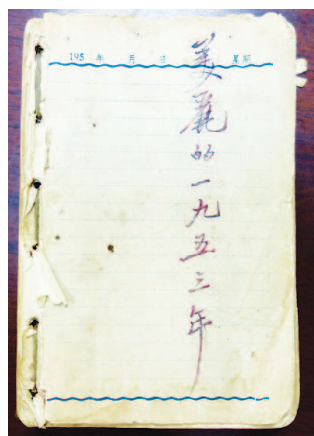 195 年 月 日 星期
美麗的一九五三年